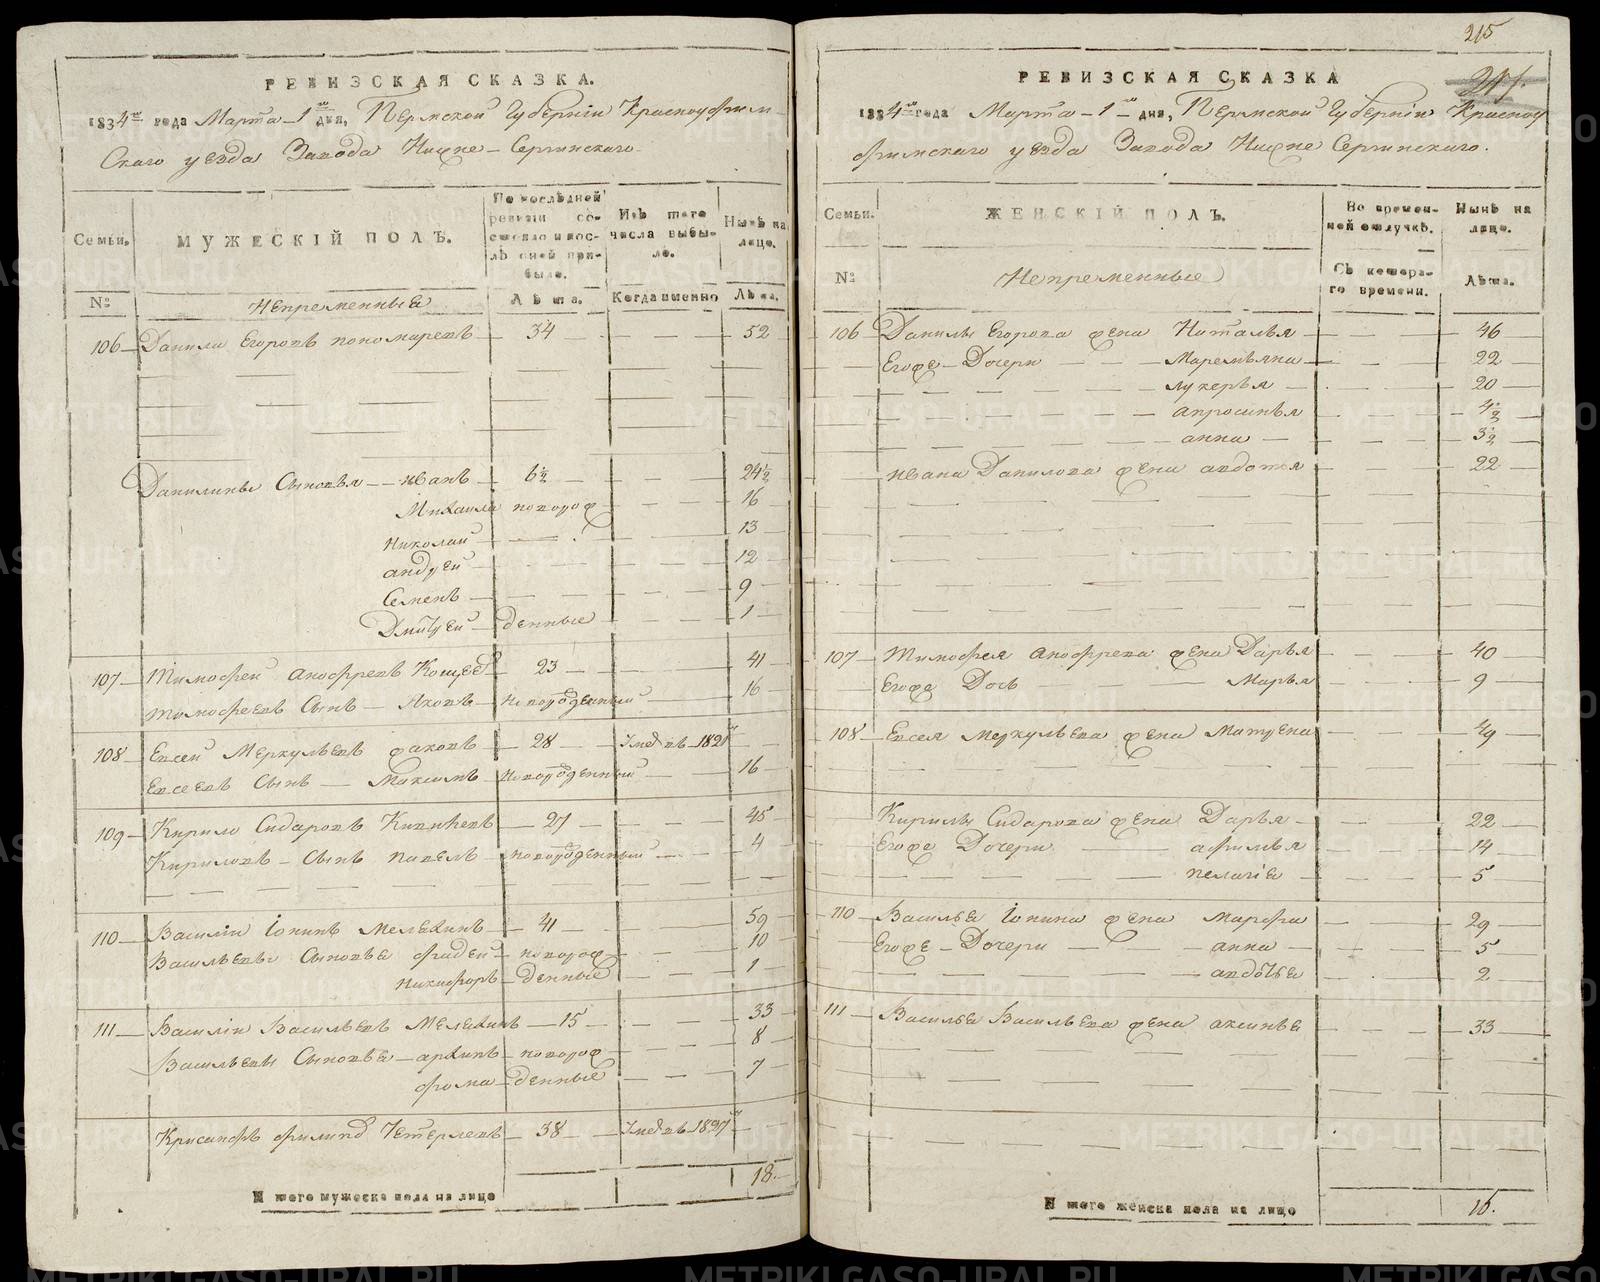 РЕВИЗСКАЯ СКАЗКА.
1834го года Марта 1го дня, Пермской Губернiи Красноуфим-
Скаго уезда Завода Нижне-Сергинскаго
Семьи.
МУЖЕСКIЙ ПОЛЪ.
По послѣдней ревизiи состояло и послѣ оней прибыло.
Изъ того числа выбыло.
Нынѣ на лице.
№
Непременныя
Лѣта.
Когда именно
Лѣта.
106 Данило Егоровъ пономаревъ 34 52
Данилины Сыновья иванъ 6½ 24½
Михаила новорож 16
Николай 13
андрей 12
Семенъ 9
Дмитрей денные 1
107 Тимофей анофревъ 23 41
Тимофеевъ Сынъ Яковъ Новорожденный 16
108 Евсей Меркульевъ 28 1821
Евсеевъ Сынъ Максимъ Новорожденный 16
109 Кирило Сидаровъ 27 45
Кириловъ Сынъ павелъ новорожденный 4
110 Василiи Iонинъ Мелехинъ 41 59
Васильевы Сыновье фадей новорож 10
никифоръ денные 1
111 Василiи Васильевъ Мелехинъ 15 33
Васильевы Сыновье архипъ новорож 8
фома денные 7
Крисанфъ филипо 38 1827
18.
И того мужеска пола на лицо
215
РЕВИЗСКАЯ СКАЗКА
1834го года Марта 1го дня, Пермской Губернiи Красноу
фимскаго уезда Завода Нижне Сергинскаго.
Семьи.
ЖЕНСКIЙ ПОЛЪ.
Во временной отлучкѣ.
Нынѣ на лице.
№
Непременные
Съ котораго времени.
Лѣта.
106 Данилы Егорова жена Наталья 46
Егоже Дочери Маремьяна 22
лукерья 20
апросинья 4½
анна 3½
ивана Данилова жена авдотя 22
107 Тимофея анофрева жена Дарья 40
Егоже Дочь Марья 9
108 Евсея меркульева жена Матрена 49
Кирилы Сидарова жена Дарья 22
Егоже Дочери афимья 14
пелагiе 5
110 Василье Iонина жена марфа 29
Егоже Дочери анна 5
авдотье 2
111 Василье Васильева жена аксинье 33
16.
И того женска пола на лицо
METRIKI.GASO-URAL.RU